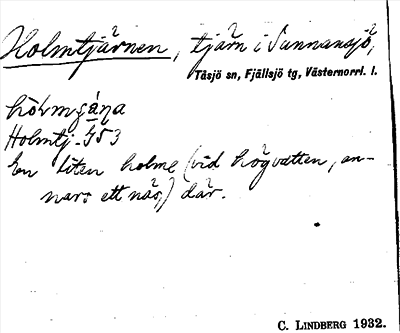 Holmtjärnen, tjärn i Sunnansjö,
Tåsjö sn, Fjällsjö tg, Västernorrl. l.
Holmtj. 453
En liten holme (vid högvatten, an-
nars ett näs,) där.
C. LINDBERG 1932.